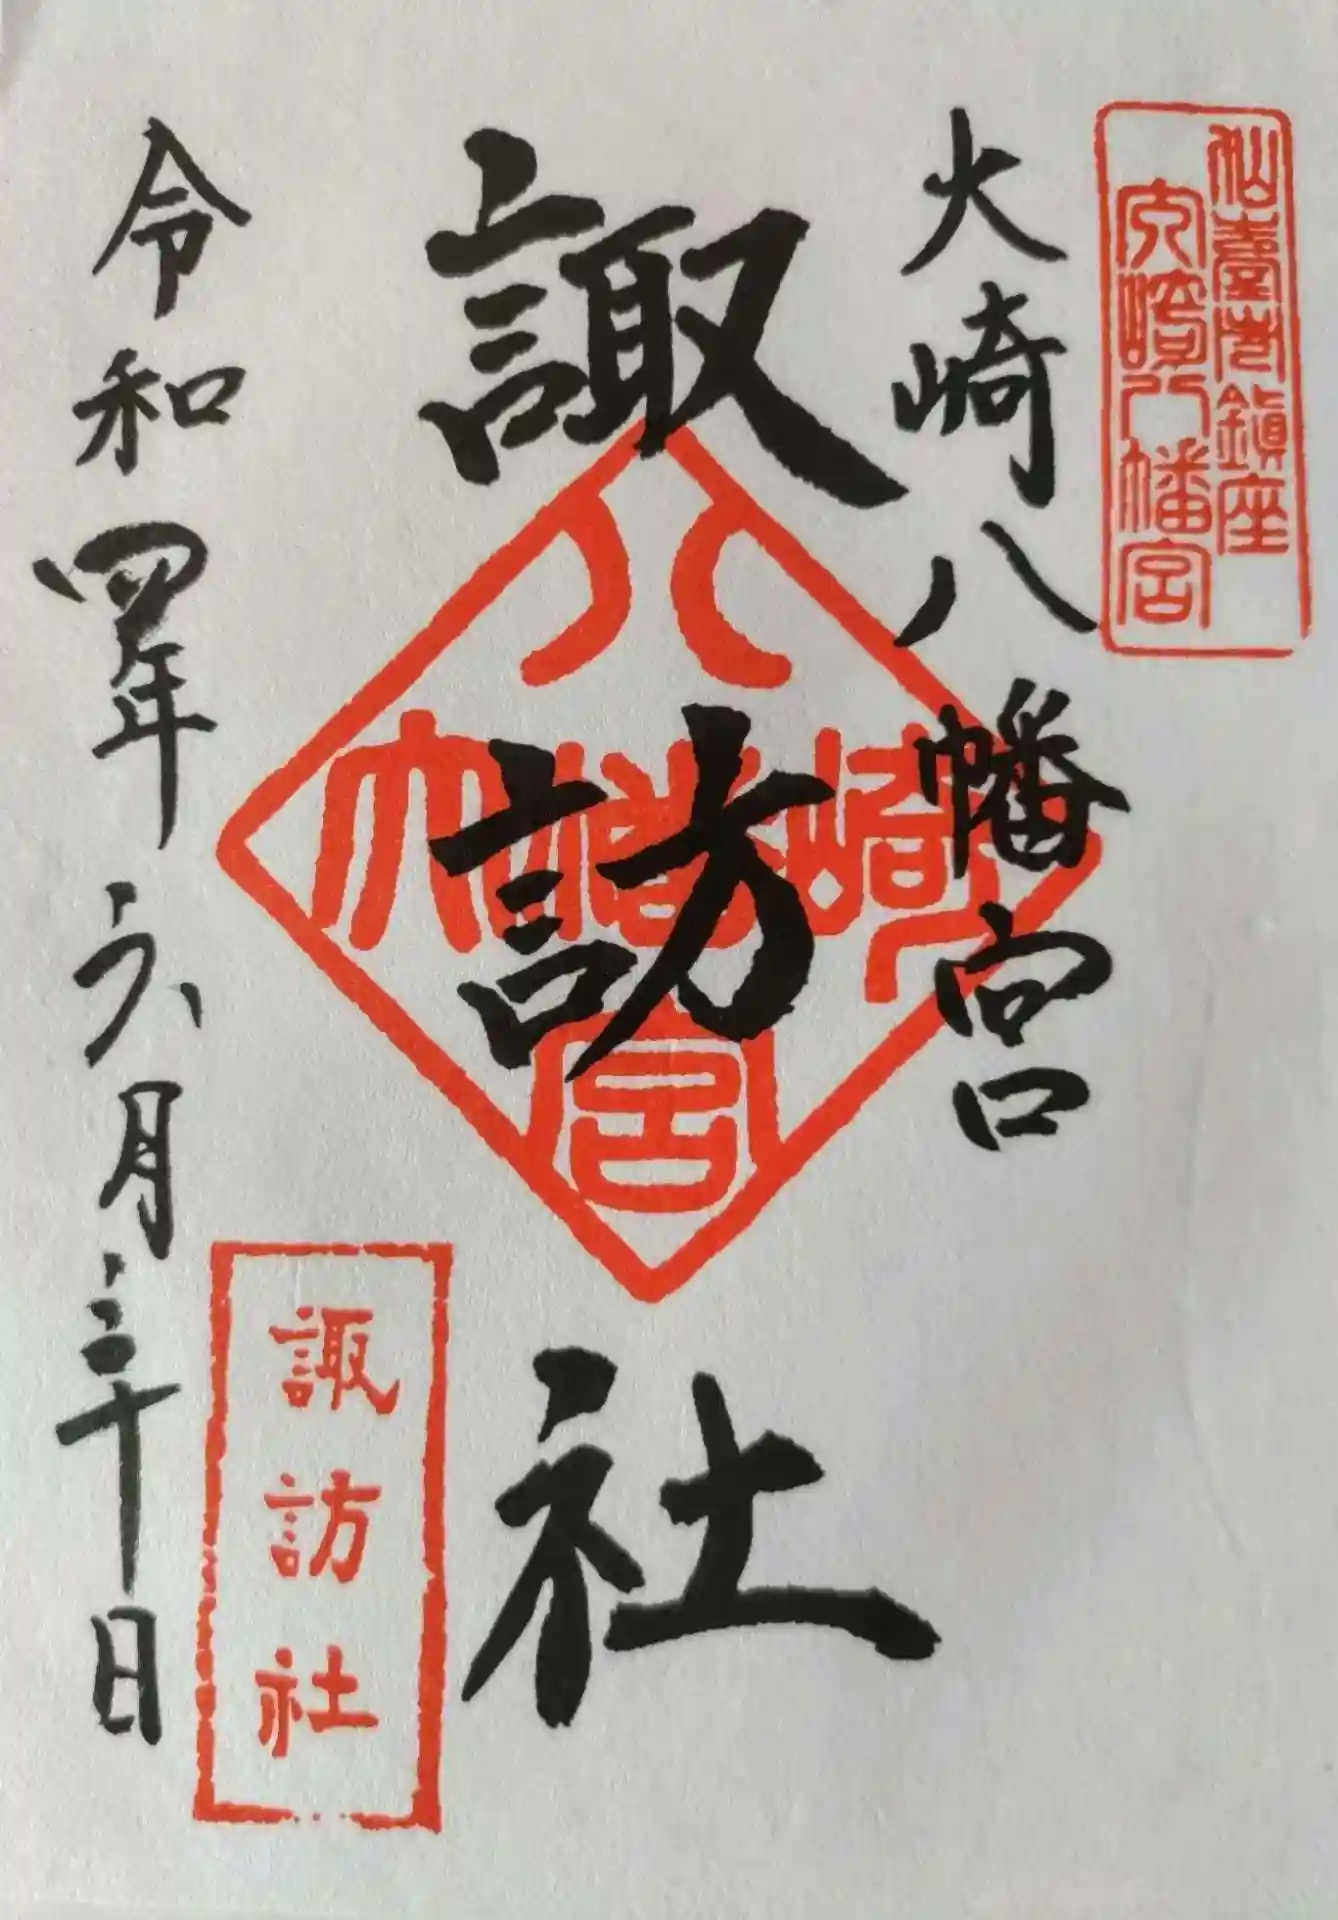 仙臺市鎮座
大崎八幡宮
大崎八幡宮
諏訪社
八
大幡崎
宮
諏訪社
令和四年六月三十日